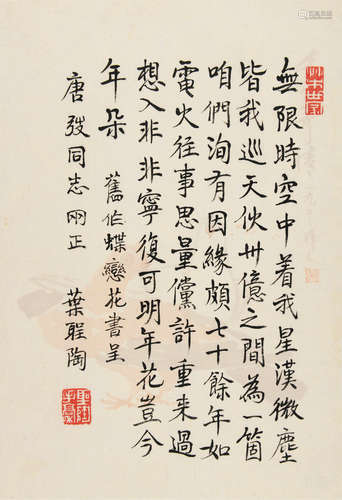 無限時空中着我星漢微塵
皆我巡天伙卅億之間為一箇
咱們洵有因緣頗七十餘年如
電火往事思量儻許重來過
想入非非寧復可明年花豈今
年朵 舊作蝶戀花書呈
唐弢同志正 葉聖陶